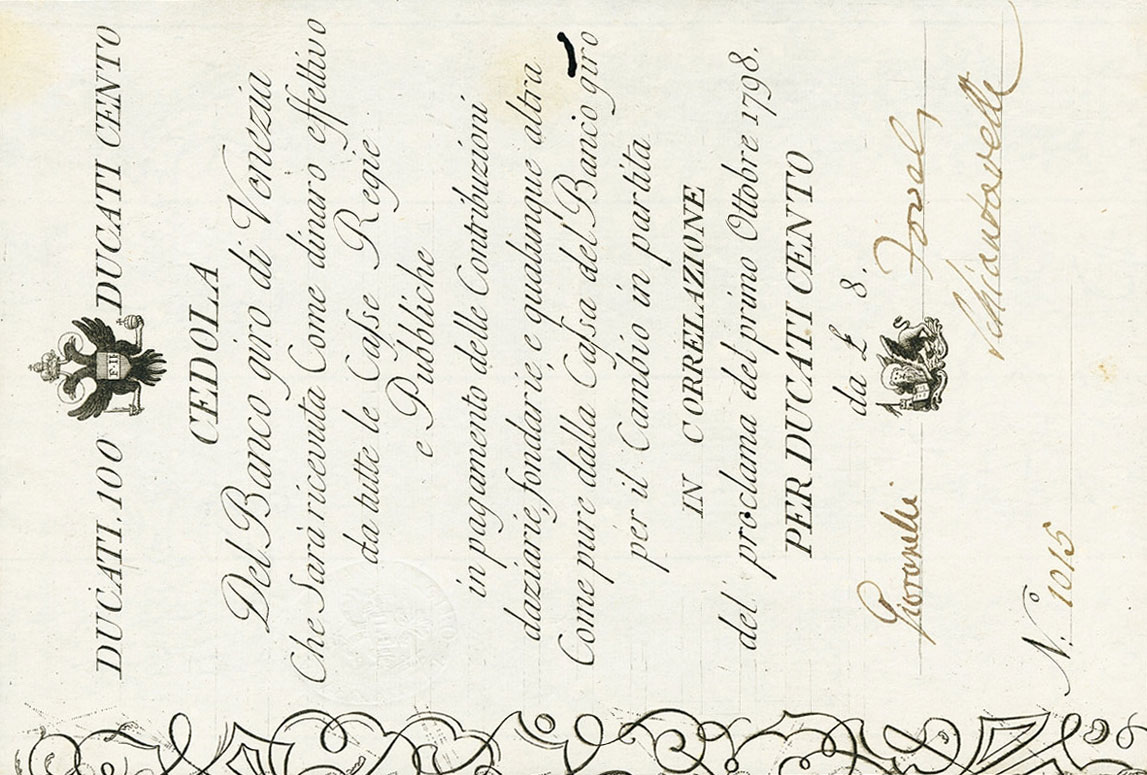 DUCATI.100 DUCATI CENTO
F.II
CEDOLA
Del Banco giro di Venezia
Che Sarà ricevuta Come dinaro effettivo
da tutte le Casse Regie
e Pubbliche
in pagamento delle Contribuzioni
daziarie, fondarie, e qualunque altra
Come pure dalla Cassa del Banco giro
per il Cambio in partita
IN CORRELAZIONE
del' proclama del primo Ottobre 1798.
PER DUCATI CENTO
da £ 8.
Giovanelli
Schiantarelli
N.º 1015